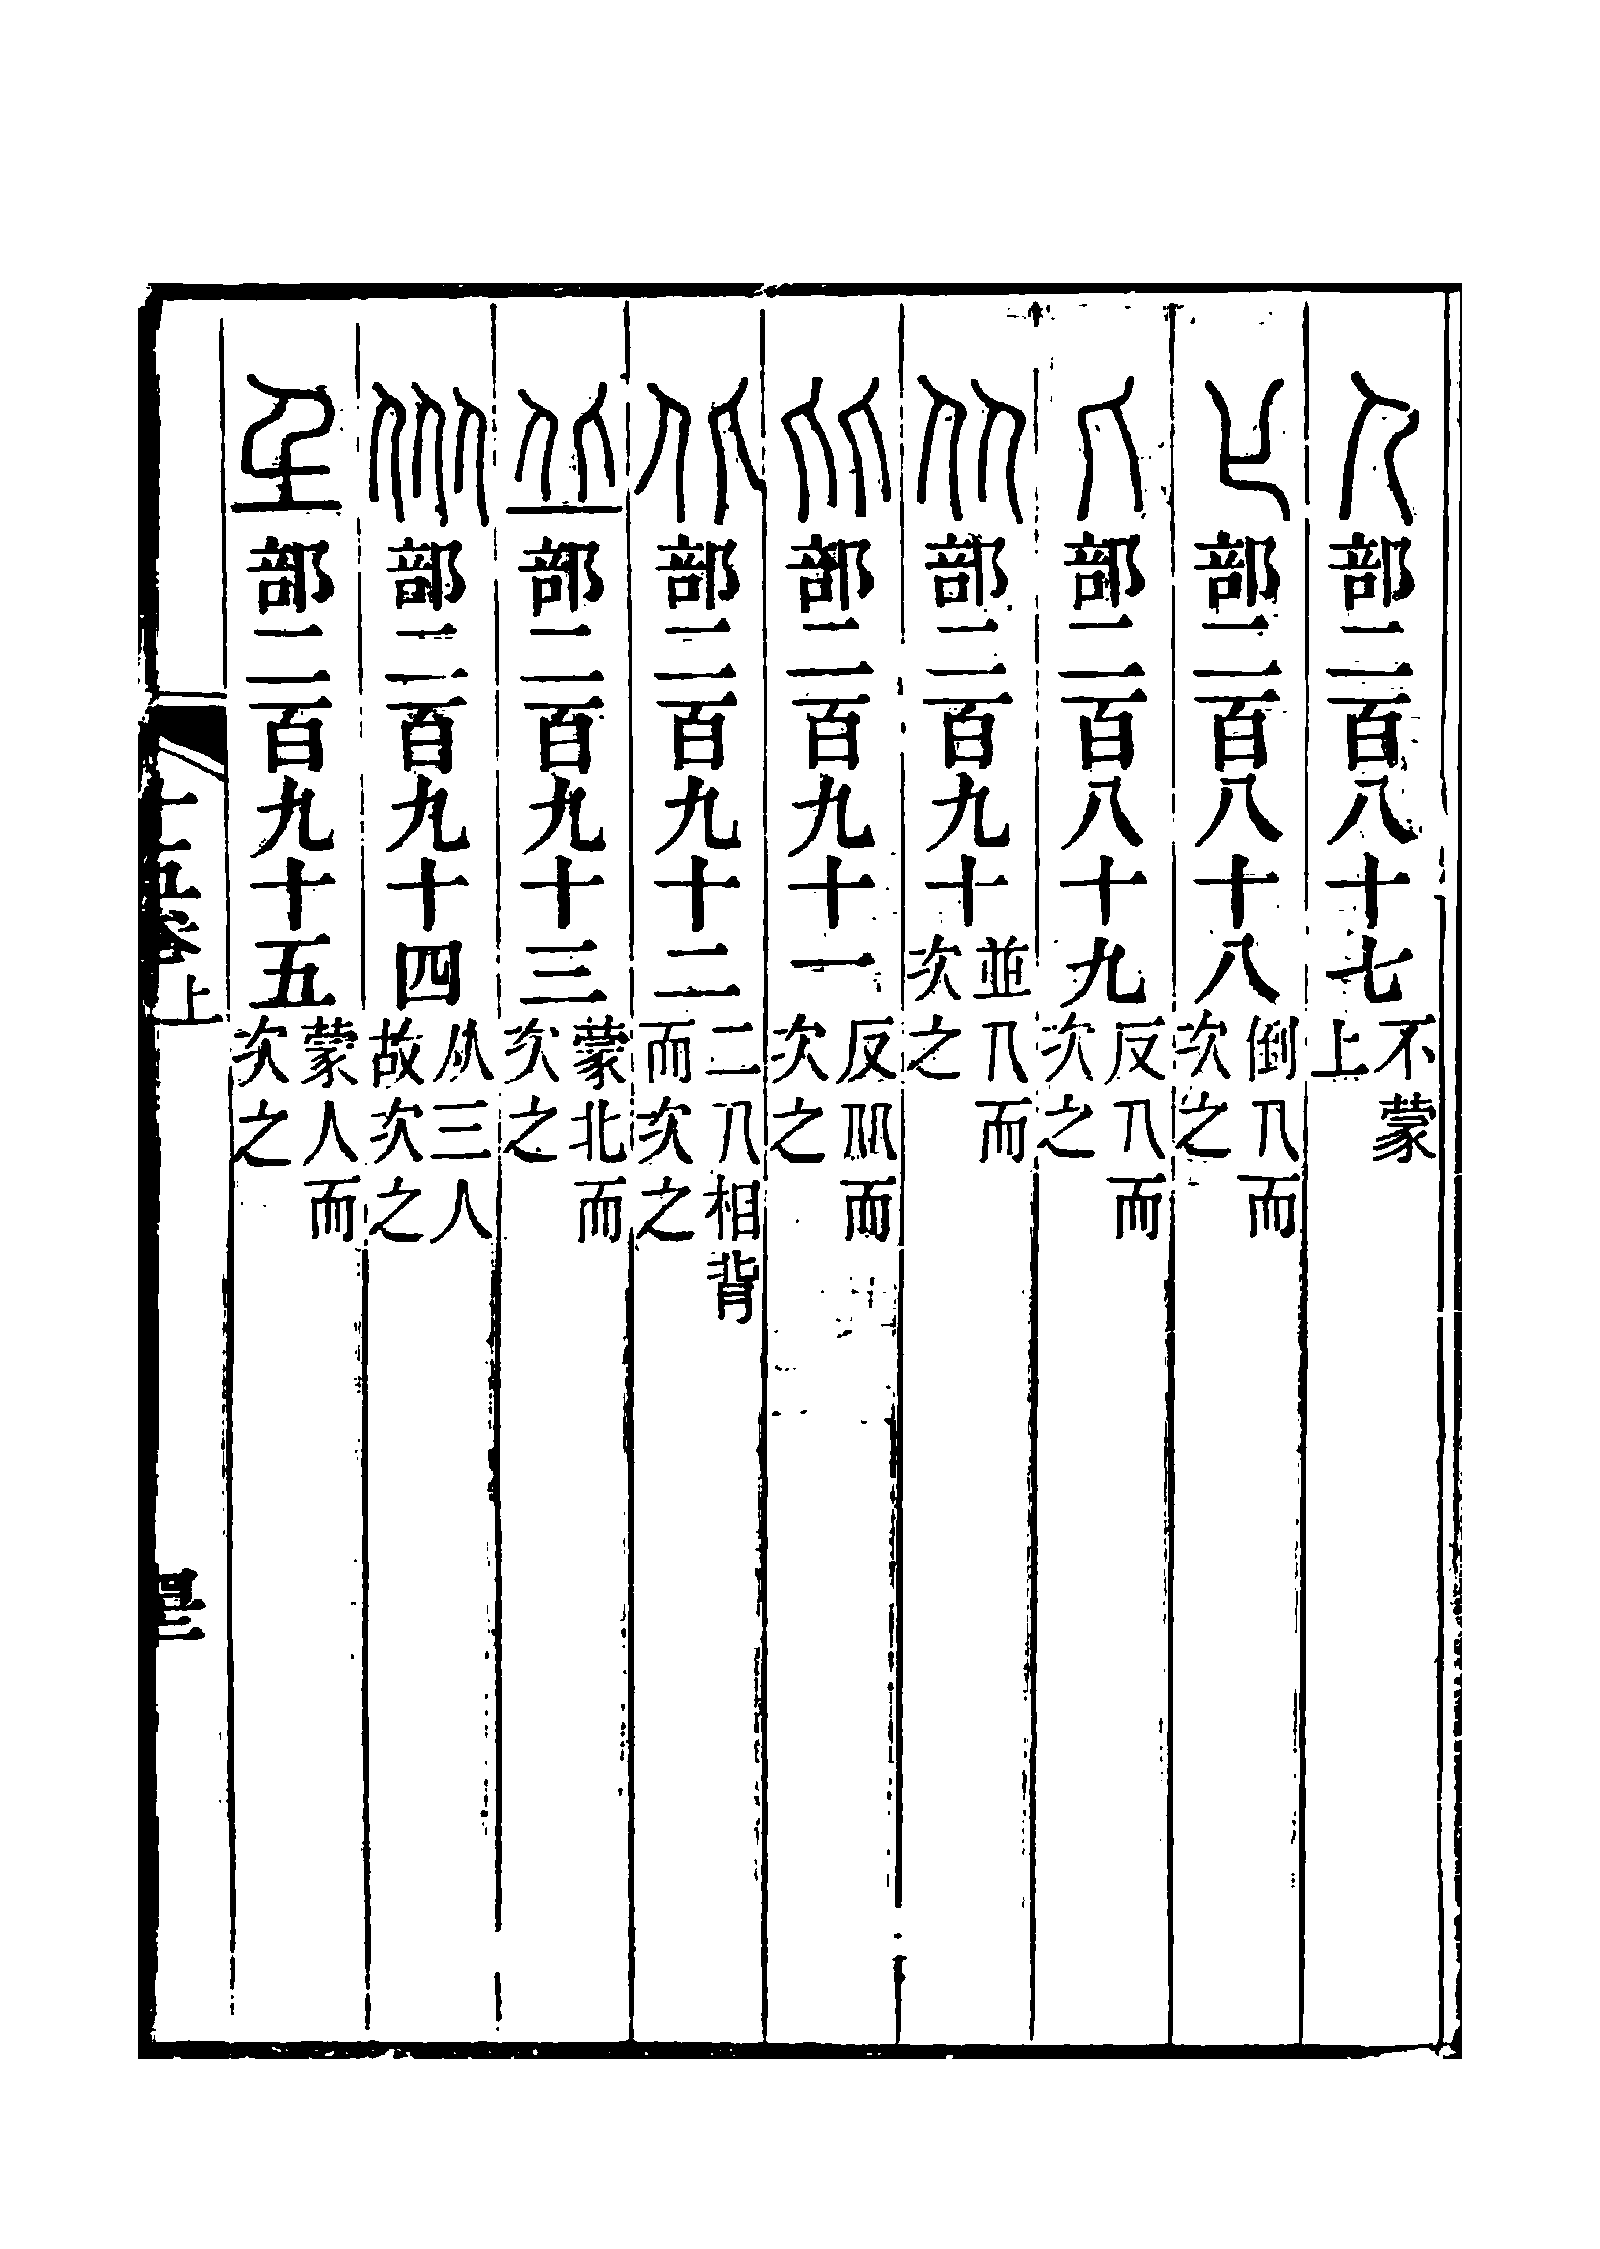 人部二百八十七不蒙上
𠤎部二百八十八倒人而次之
匕部二百八十九反人而次之
从部二百九十並人而次之
比部二百九十一反从而次之
北部二百九十二二人相背而次之
丘部二百九十三蒙北而次之
㐺部二百九十四从三人故次之
𡈼部二百九十五蒙人而次之
十五卷上